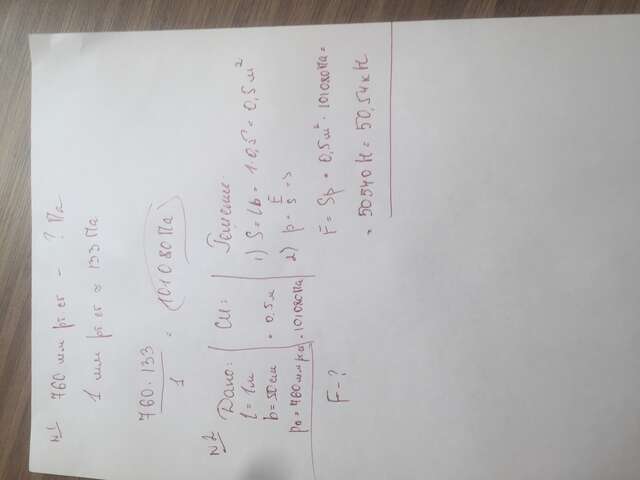 №1 760 мм рт ст - ? Па
1 мм рт ст ≈ 133 Па
760 · 133
1
= 101080 Па
№2
Дано:
l = 1м
b = 50 см
p₀ = 760 мм р.с
F - ?
СИ:
= 0,5 м
= 101080 Па
Решение
1) S = lb = 1 · 0,5 = 0,5 м²
2) p = F/S =>
F = Sp = 0,5 м² · 101080 Па =
= 50540 Н = 50,54 кН